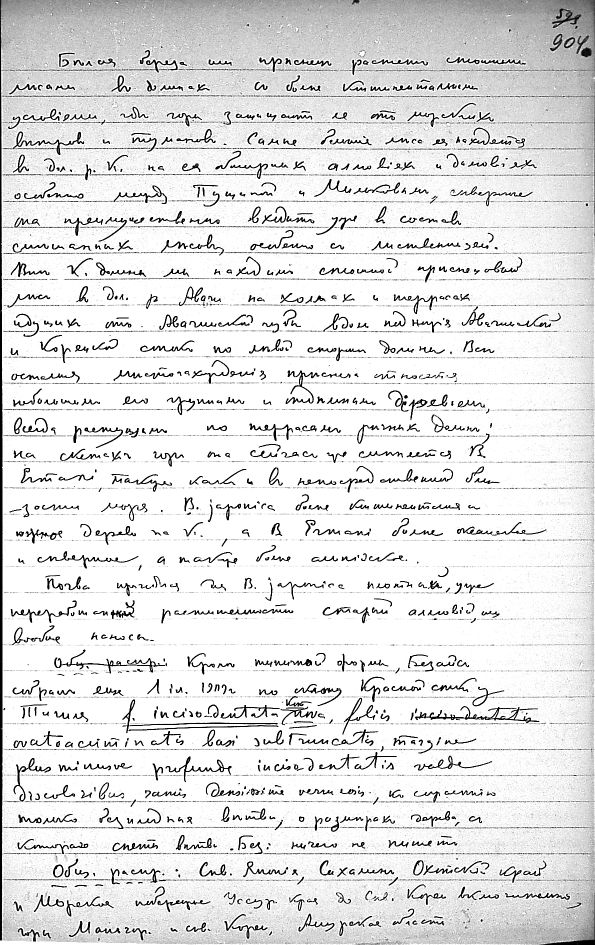 591.
904.
Белая береза или приснец растет сплошными
лесами в долинах с более континентальными
условіями, где горы защищают ее от морских
ветров и туманов. Самые большие леса ея находятся
в дол. р. К. на ея обширных аллювіях и делювіях
особенно между Пущиной и Мильковым, севернее
она преимущественно входит уже в состав
смешанных лесов, особенно с лиственницей.
Вне К. долины мы находим сплошной приснецовый
лес в дол. р Авачи на холмах и террасах,
идущих от Авачинской губы вдоль подножія Авачинской
и Корецкой сопки по левой стороне долины. Все
остальныя местонахожденія приснеца относятся
небольшим его группам и отдельным деревьям,
всегда растущим по террасам речных долин;
на скатах гор она сейчас же сменяется B.
Ermani, также как и в непосредственной бли-
зости моря. B. japonica более континентальное и
южное дерево на К., а B Ermani более океанское
и северное, а также более альпійское.
Почва пригодная для B. japonica плотный, уже
переработанный растительностью старый аллювій, или
вообще наносы.
Общ. распр: Кроме типичной формы, Безайс
собрал еще 1 іл. 1909г по склону Красной сопки у
Тигиля f. inciso-dentata Kom nova, foliis inciso-dentatis
ovatoacuminatis basi subtruncatis, margine
plus minusve profunde incisodentatis valde
discoloribus, ramis densissime verrucosis, к сожалению
только безплодная ветвь, о размерах дерева, с
которого снята ветвь. Без: ничего не пишет
Общ. распр.: Сев. Японія, Сахалин, Охотскій край
и Морское побережье Уссур. края до Сев. Кореи включительно,
горы Маньчжур. и сев. Кореи, Амурская область.